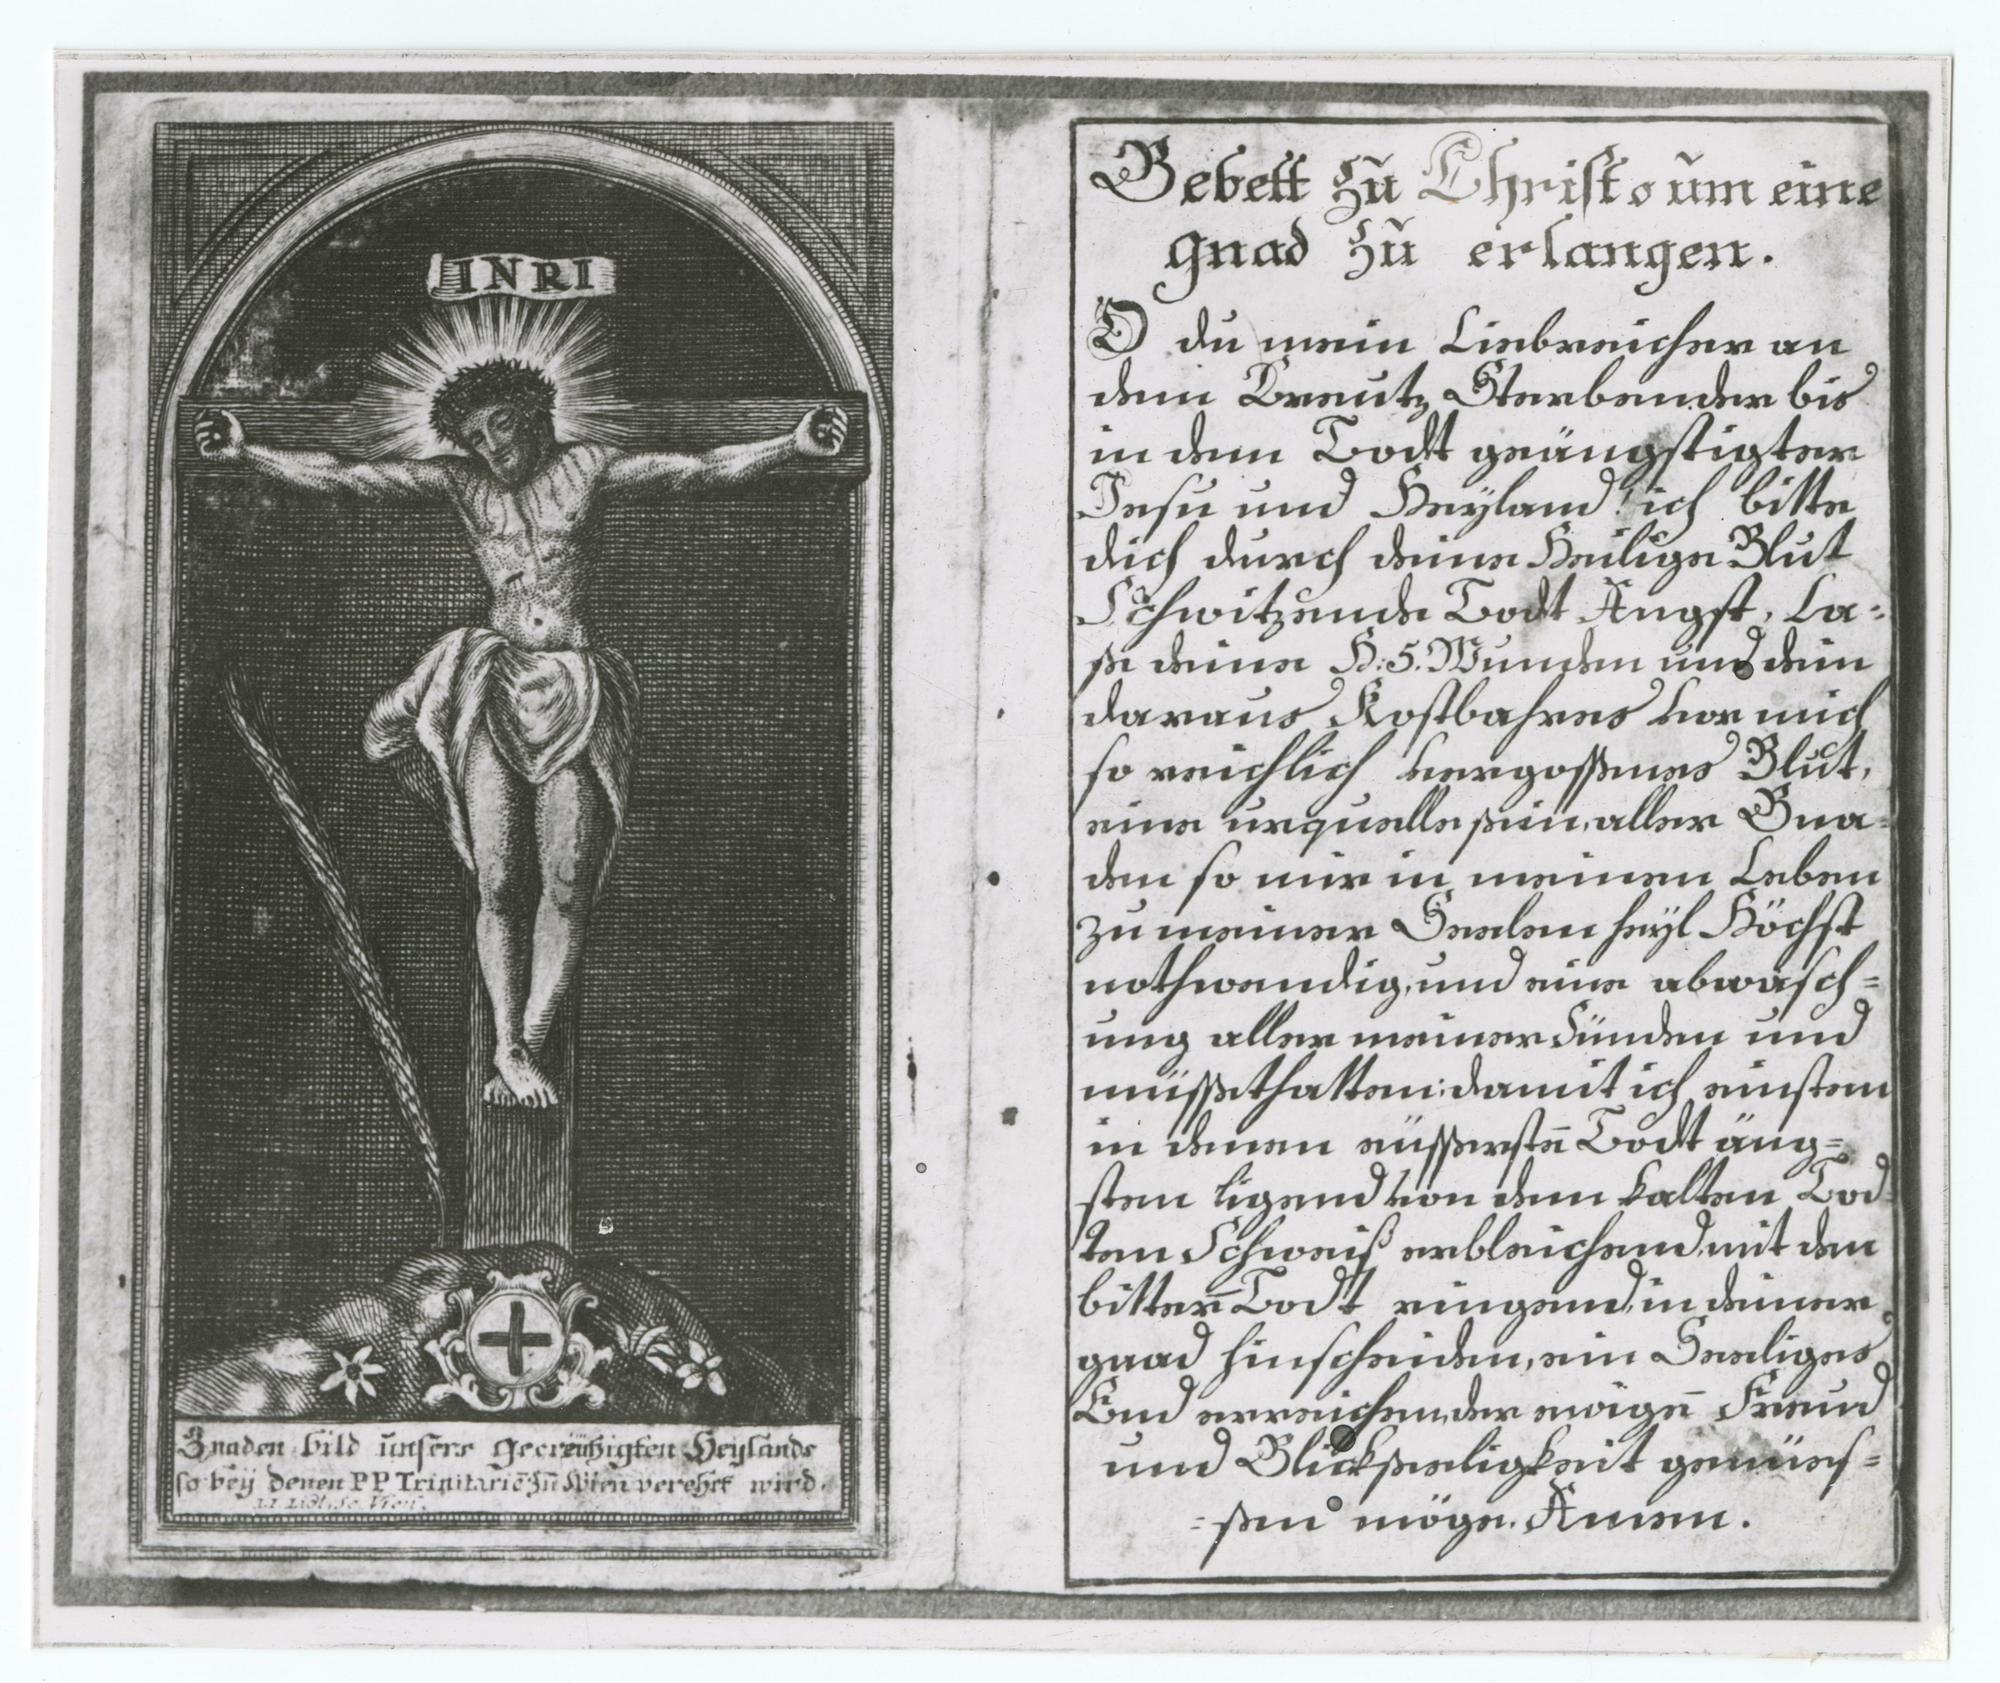 INRI
Gnaden bild unsers gecreützigten Heylands
so beÿ denen PP Trinitariē zu Wien verehrt wird.
Gebett Zu Christo um eine
gnad Zu erlangen.
O du mein Liebreicher an
dem Creutz Sterbender bis
in dem Todt geängstigter
Jesu und Heÿland! ich bitte
dich durch deine Heilige Blut
Schwitzende Todt Ängst, La=
ße deine H: 5. Wunden und dein
daraus Kostbahres vor mich
so reichlich vergoßenes Blut,
eine urquelle sein, aller Gna=
den so mir in meinem Leben
zu meiner Seelen heÿl Höchst
nothwendig, und eine abwasch=
ung aller meiner Sünden und
müssethatten: damit ich einstem
in denen eüssersteñ Todt äng=
sten ligend von dem kalten Tod=
ten Schweiß erbleichend, mit dem
bitterñ Todt ringend, in deiner
gnad hinscheiden, ein Seeliges
End erreichen, der ewigeñ Freud
und Glückseeligkeit genües=
=sen möge. Amen.